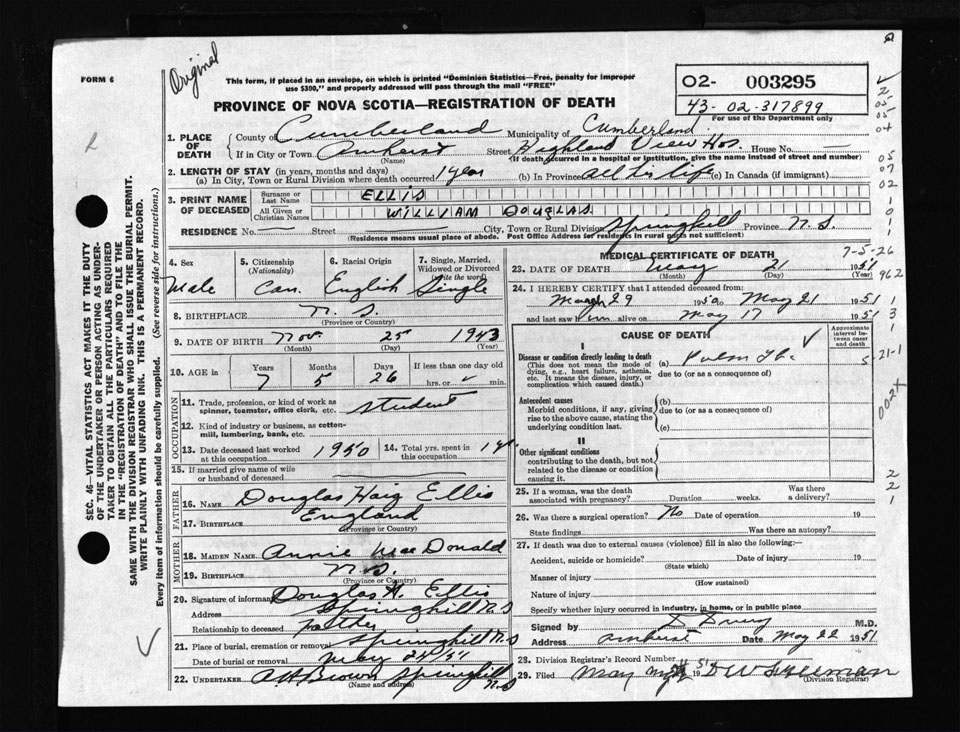 FORM 6
Original
This form, if placed in an envelope, on which is printed "Dominion Statistics—Free, penalty for improper
use $300," and properly addressed will pass through the mail "FREE"
02- 003295
43-02-317899
For use of the Department only
PROVINCE OF NOVA SCOTIA—REGISTRATION OF DEATH
1. PLACE OF DEATH
County of Cumberland Municipality of Cumberland
If in City or Town Amherst Street Highland View Hos. House No. —
(Name) (If death occurred in a hospital or institution, give the name instead of street and number)
2. LENGTH OF STAY (in years, months and days)
(a) In City, Town or Rural Division where death occurred 1 year (b) In Province all his life (c) In Canada (if immigrant)
3. PRINT NAME OF DECEASED
Surname or Last Name ELLIS
All Given or Christian Names WILLIAM DOUGLAS
RESIDENCE No. — Street — City, Town or Rural Division Springhill Province N.S.
(Residence means usual place of abode. Post Office Address for residents in rural parts not sufficient)
4. Sex
Male
5. Citizenship
(Nationality)
Can.
6. Racial Origin
English
7. Single, Married,
Widowed or Divorced
(Write the word)
Single
8. BIRTHPLACE N.S.
(Province or Country)
9. DATE OF BIRTH Nov. 25 1943
(Month) (Day) (Year)
10. AGE in
Years Months Days If less than one day
7 5 26 hrs. or min.
OCCUPATION
11. Trade, profession, or kind of work as
spinner, teamster, office clerk, etc. student
12. Kind of industry or business, as cotton-
mill, lumbering, bank, etc.
13. Date deceased last worked
at this occupation 1950
14. Total yrs. spent in
this occupation 1 yr.
15. If married give name of wife
or husband of deceased
FATHER
16. NAME Douglas Haig Ellis
17. BIRTHPLACE England
(Province or Country)
MOTHER
18. MAIDEN NAME Annie MacDonald
19. BIRTHPLACE N.S.
(Province or Country)
20. Signature of informant Douglas H. Ellis
Address Springhill N.S
Relationship to deceased Father
21. Place of burial, cremation or removal Springhill N.S
Date of burial or removal May 24/51
22. UNDERTAKER AH Brown Springhill N.S
(Name and address)
MEDICAL CERTIFICATE OF DEATH
7-5-26
23. DATE OF DEATH May 21 1951
(Month) (Day) (Year)
962
24. I HEREBY CERTIFY that I attended deceased from:
29 1950 to May 21 1951
and last saw him alive on May 17 1951
CAUSE OF DEATH
Approximate
interval be-
tween onset
and death
I
Disease or condition directly leading to death
(This does not mean the mode of
dying, e.g., heart failure, asthenia,
etc. It means the disease, injury, or
complication which caused death.)
(a) Pulm Tbc
due to (or as a consequence of)
Antecedent causes
Morbid conditions, if any, giving
rise to the above cause, stating the
underlying condition last.
(b)
due to (or as a consequence of)
(c)
II
Other significant conditions
contributing to the death, but not
related to the disease or condition
causing it.
25. If a woman, was the death
associated with pregnancy? Duration weeks. Was there
a delivery?
26. Was there a surgical operation? No Date of operation 19
State findings Was there an autopsy?
27. If death was due to external causes (violence) fill in also the following:—
Accident, suicide or homicide? Date of injury 19
(State which)
Manner of injury
(How sustained)
Nature of injury
Specify whether injury occurred in industry, in home, or in public place
Signed by M.D.
Address Amherst Date May 22 1951
28. Division Registrar's Record Number
29. Filed May
(Division Registrar)
SEC. 46—VITAL STATISTICS ACT MAKES IT THE DUTY
OF THE UNDERTAKER OR PERSON ACTING AS UNDER-
TAKER TO OBTAIN ALL THE PARTICULARS REQUIRED
IN THE "REGISTRATION OF DEATH" AND TO FILE THE
SAME WITH THE DIVISION REGISTRAR WHO SHALL ISSUE THE BURIAL PERMIT.
WRITE PLAINLY WITH UNFADING INK. THIS IS A PERMANENT RECORD.
Every item of information should be carefully supplied. (See reverse side for instructions.)